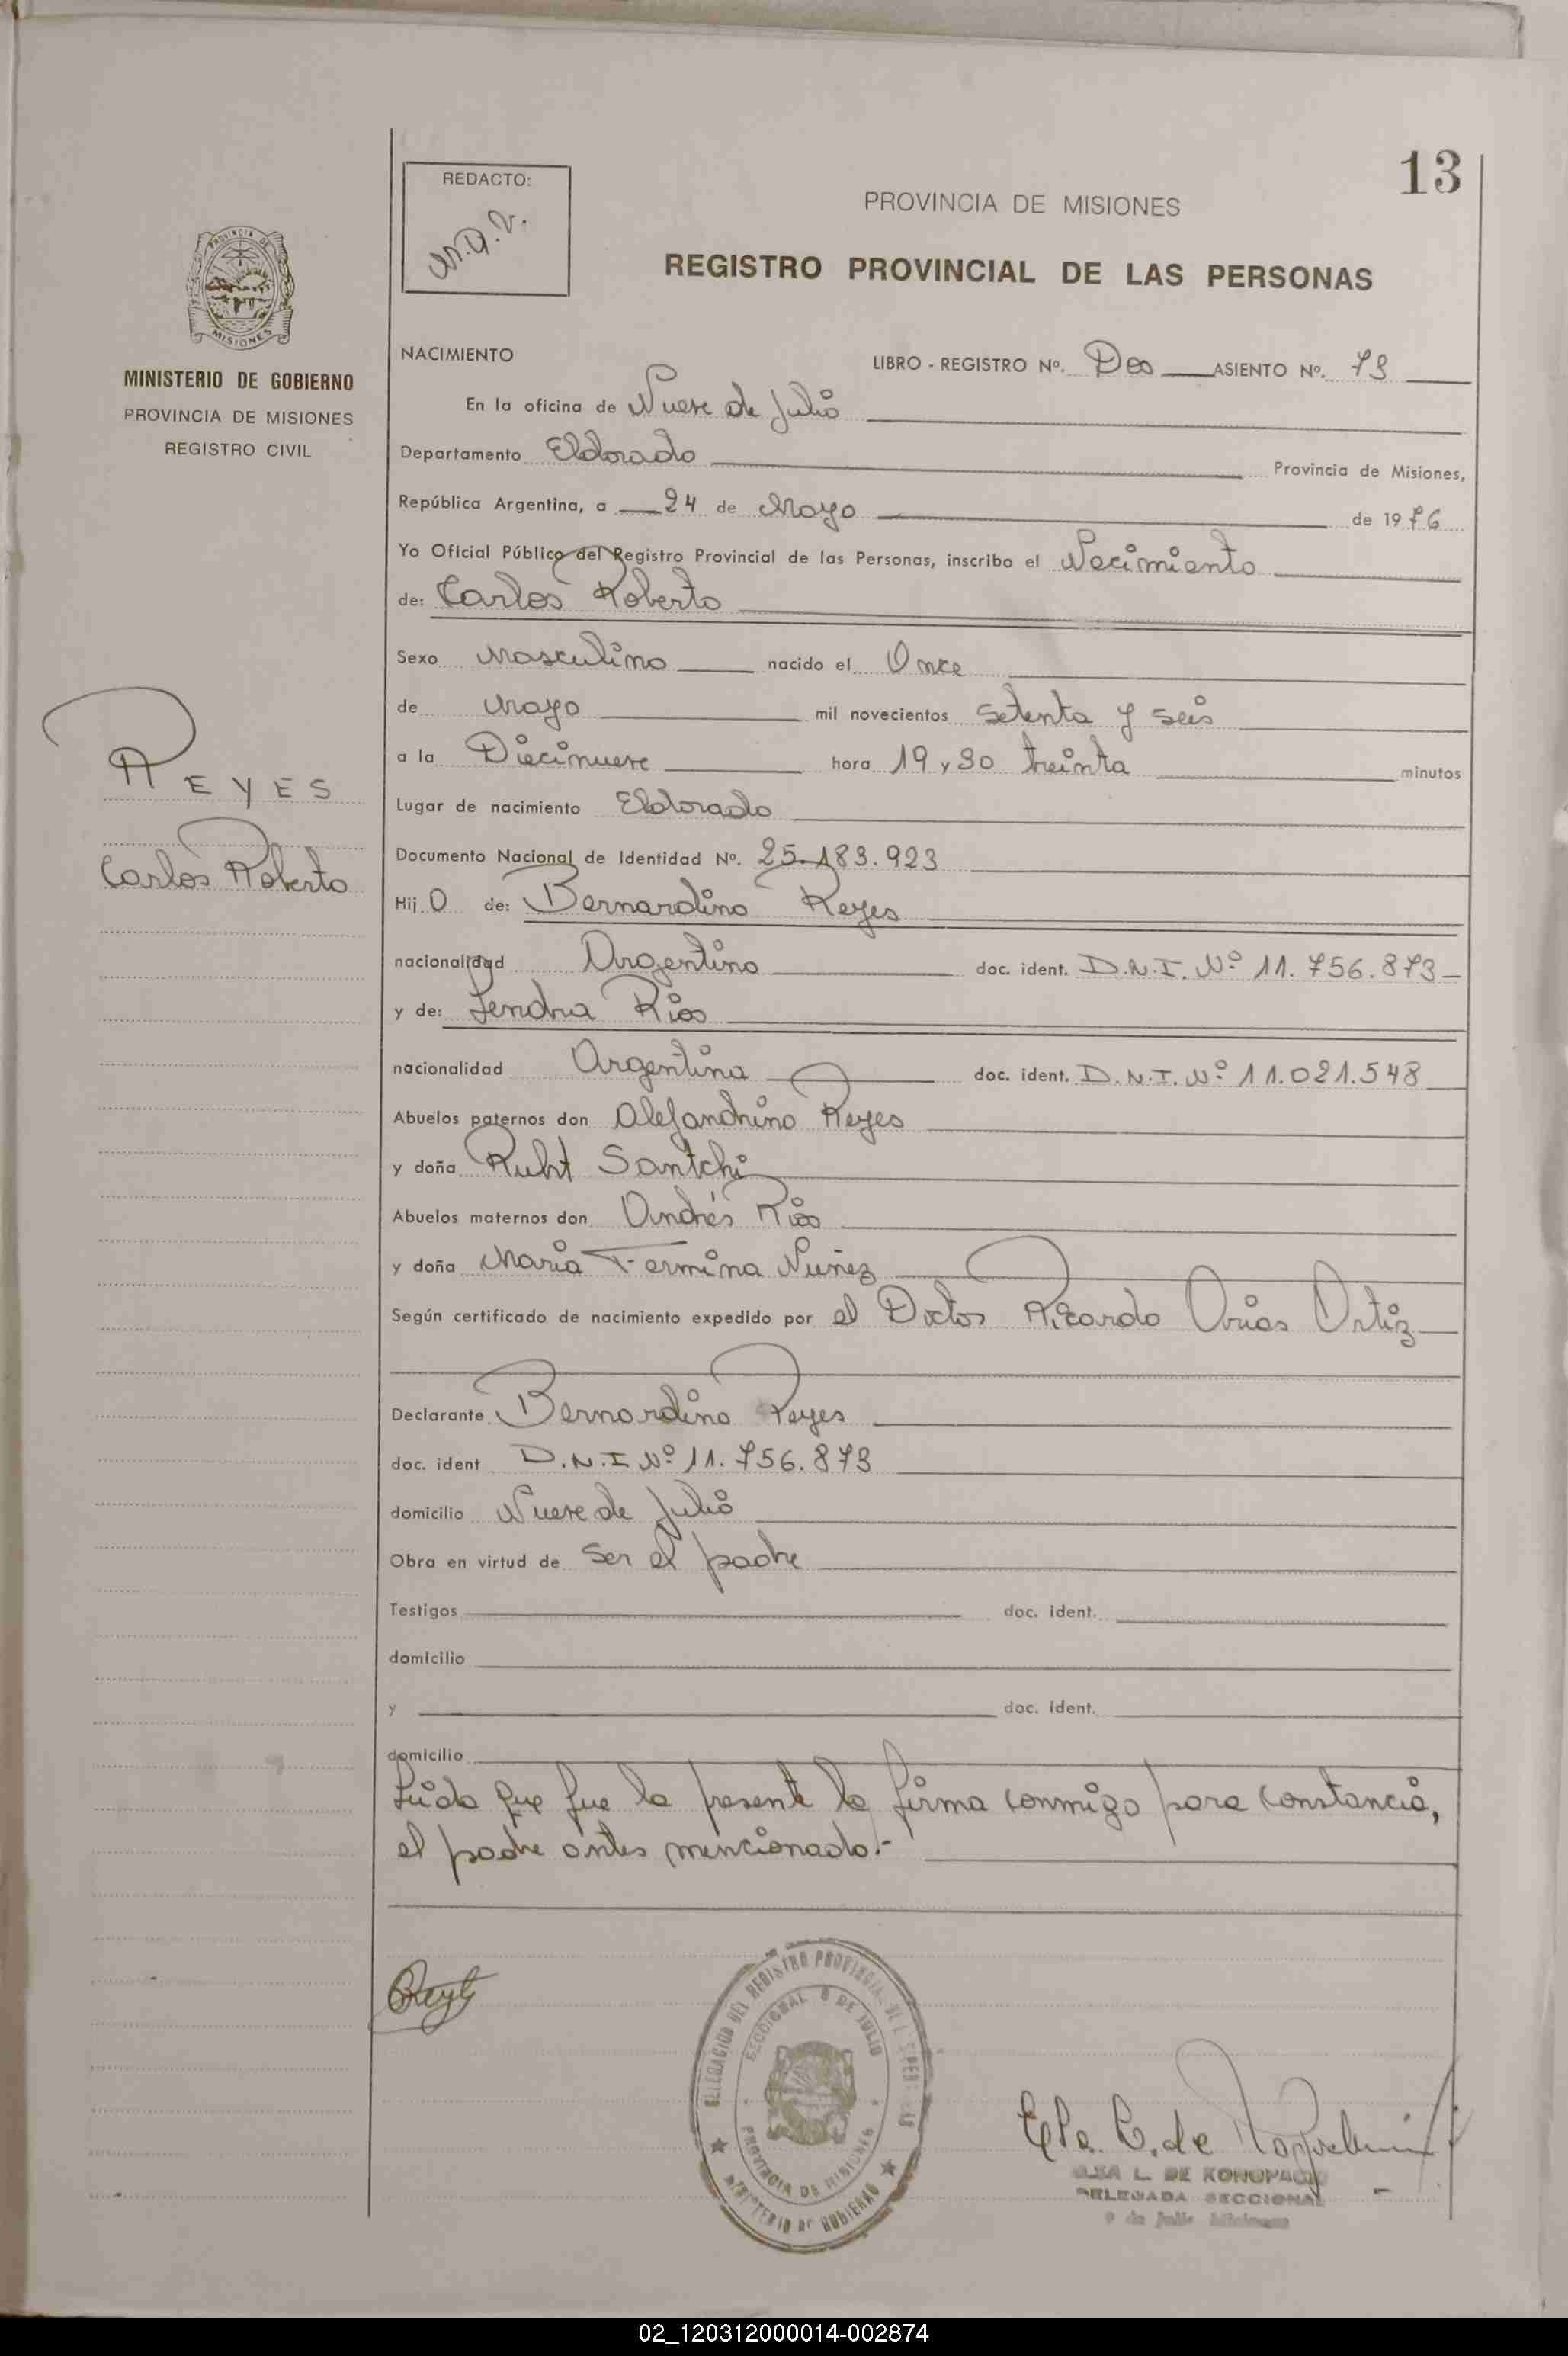 13
REDACTO:
M.A.V.
PROVINCIA DE MISIONES
REGISTRO PROVINCIAL DE LAS PERSONAS
PROVINCIA DE
MISIONES
MINISTERIO DE GOBIERNO
PROVINCIA DE MISIONES
REGISTRO CIVIL
REYES
Carlos Roberto
NACIMIENTO LIBRO - REGISTRO Nº. Dos ASIENTO Nº. 73
En la oficina de Nueve de Julio
Departamento Eldorado Provincia de Misiones,
República Argentina, a 24 de Mayo de 1976
Yo Oficial Público del Registro Provincial de las Personas, inscribo el Nacimiento
de: Carlos Roberto
Sexo Masculino nacido el Once
de Mayo mil novecientos setenta y seis
a la Diecinueve hora 19 y 30 treinta minutos
Lugar de nacimiento Eldorado
Documento Nacional de Identidad Nº. 25.183.923
Hij O de: Bernardino Reyes
nacionalidad Argentino doc. ident. D.N.I. Nº 11.756.873
y de: Rios
nacionalidad Argentina doc. ident. D.N.I. Nº 11.021.548
Abuelos paternos don Alejandrino Reyes
y doña Santchi
Abuelos maternos don Andrés Rios
y doña Maria Fermina Nuñez
Según certificado de nacimiento expedido por el Doctor Ricardo Arias Ortiz
Declarante Bernardino Reyes
doc. ident D.N.I Nº 11.756.873
domicilio Nueve de Julio
Obra en virtud de ser el padre
Testigos doc. ident.
domicilio
y doc. ident.
domicilio
Leida que fue la presente la firma conmigo para constancia,
el padre antes mencionado.-
DELEGACION DEL REGISTRO PROVINCIAL DE LAS PERSONAS
SECCIONAL 9 DE JULIO
PROVINCIA DE MISIONES
MINISTERIO DE GOBIERNO
ELSA L. DE KONOPACKI
DELEGADA SECCIONAL
9 de Julio Misiones
02_120312000014-002874